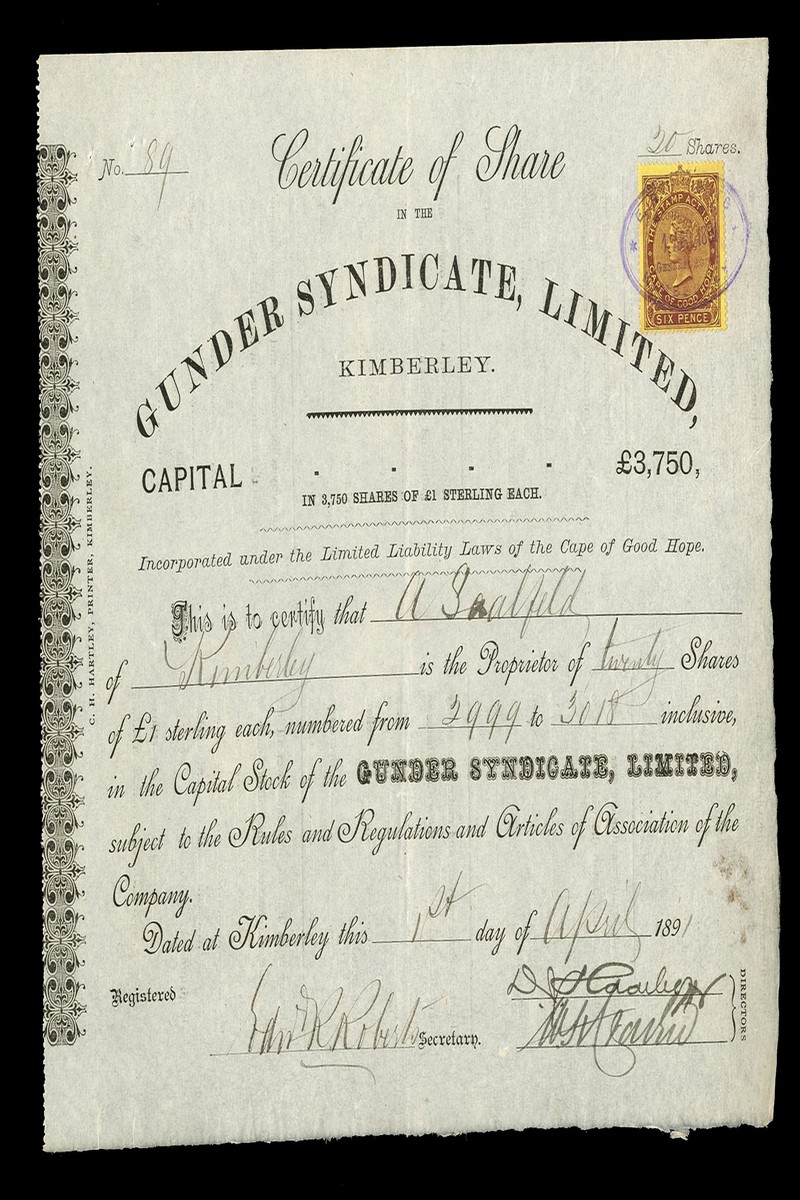 No. 89
20 Shares.
Certificate of Share
IN THE
GUNDER SYNDICATE, LIMITED,
KIMBERLEY.
THE STAMP ACT
CAPE OF GOOD HOPE
SIX PENCE
CAPITAL - - - - £3,750,
IN 3,750 SHARES OF £1 STERLING EACH.
Incorporated under the Limited Liability Laws of the Cape of Good Hope.
This is to certify that A Saalfeld
of Kimberley is the Proprietor of twenty Shares
of £1 sterling each, numbered from 2999 to 3018 inclusive,
in the Capital Stock of the GUNDER SYNDICATE, LIMITED,
subject to the Rules and Regulations and Articles of Association of the
Company.
Dated at Kimberley this 1st day of April 1891
Registered
Edwd R Roberts Secretary.
DIRECTORS
C. H. HARTLEY, PRINTER, KIMBERLEY.